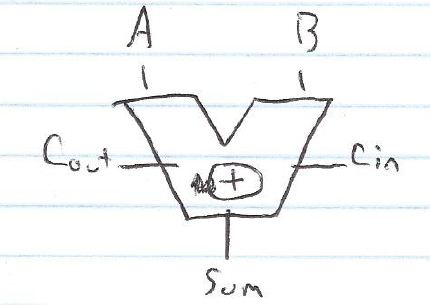 A B
Cout Cin
+
Sum